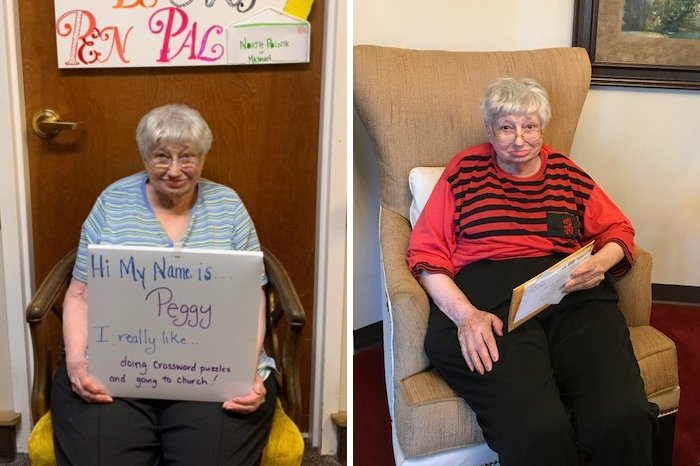 Pen Pal
North Pointe
of
Hi My Name is...
Peggy
I really like...
doing Crossword puzzles
and going to church!